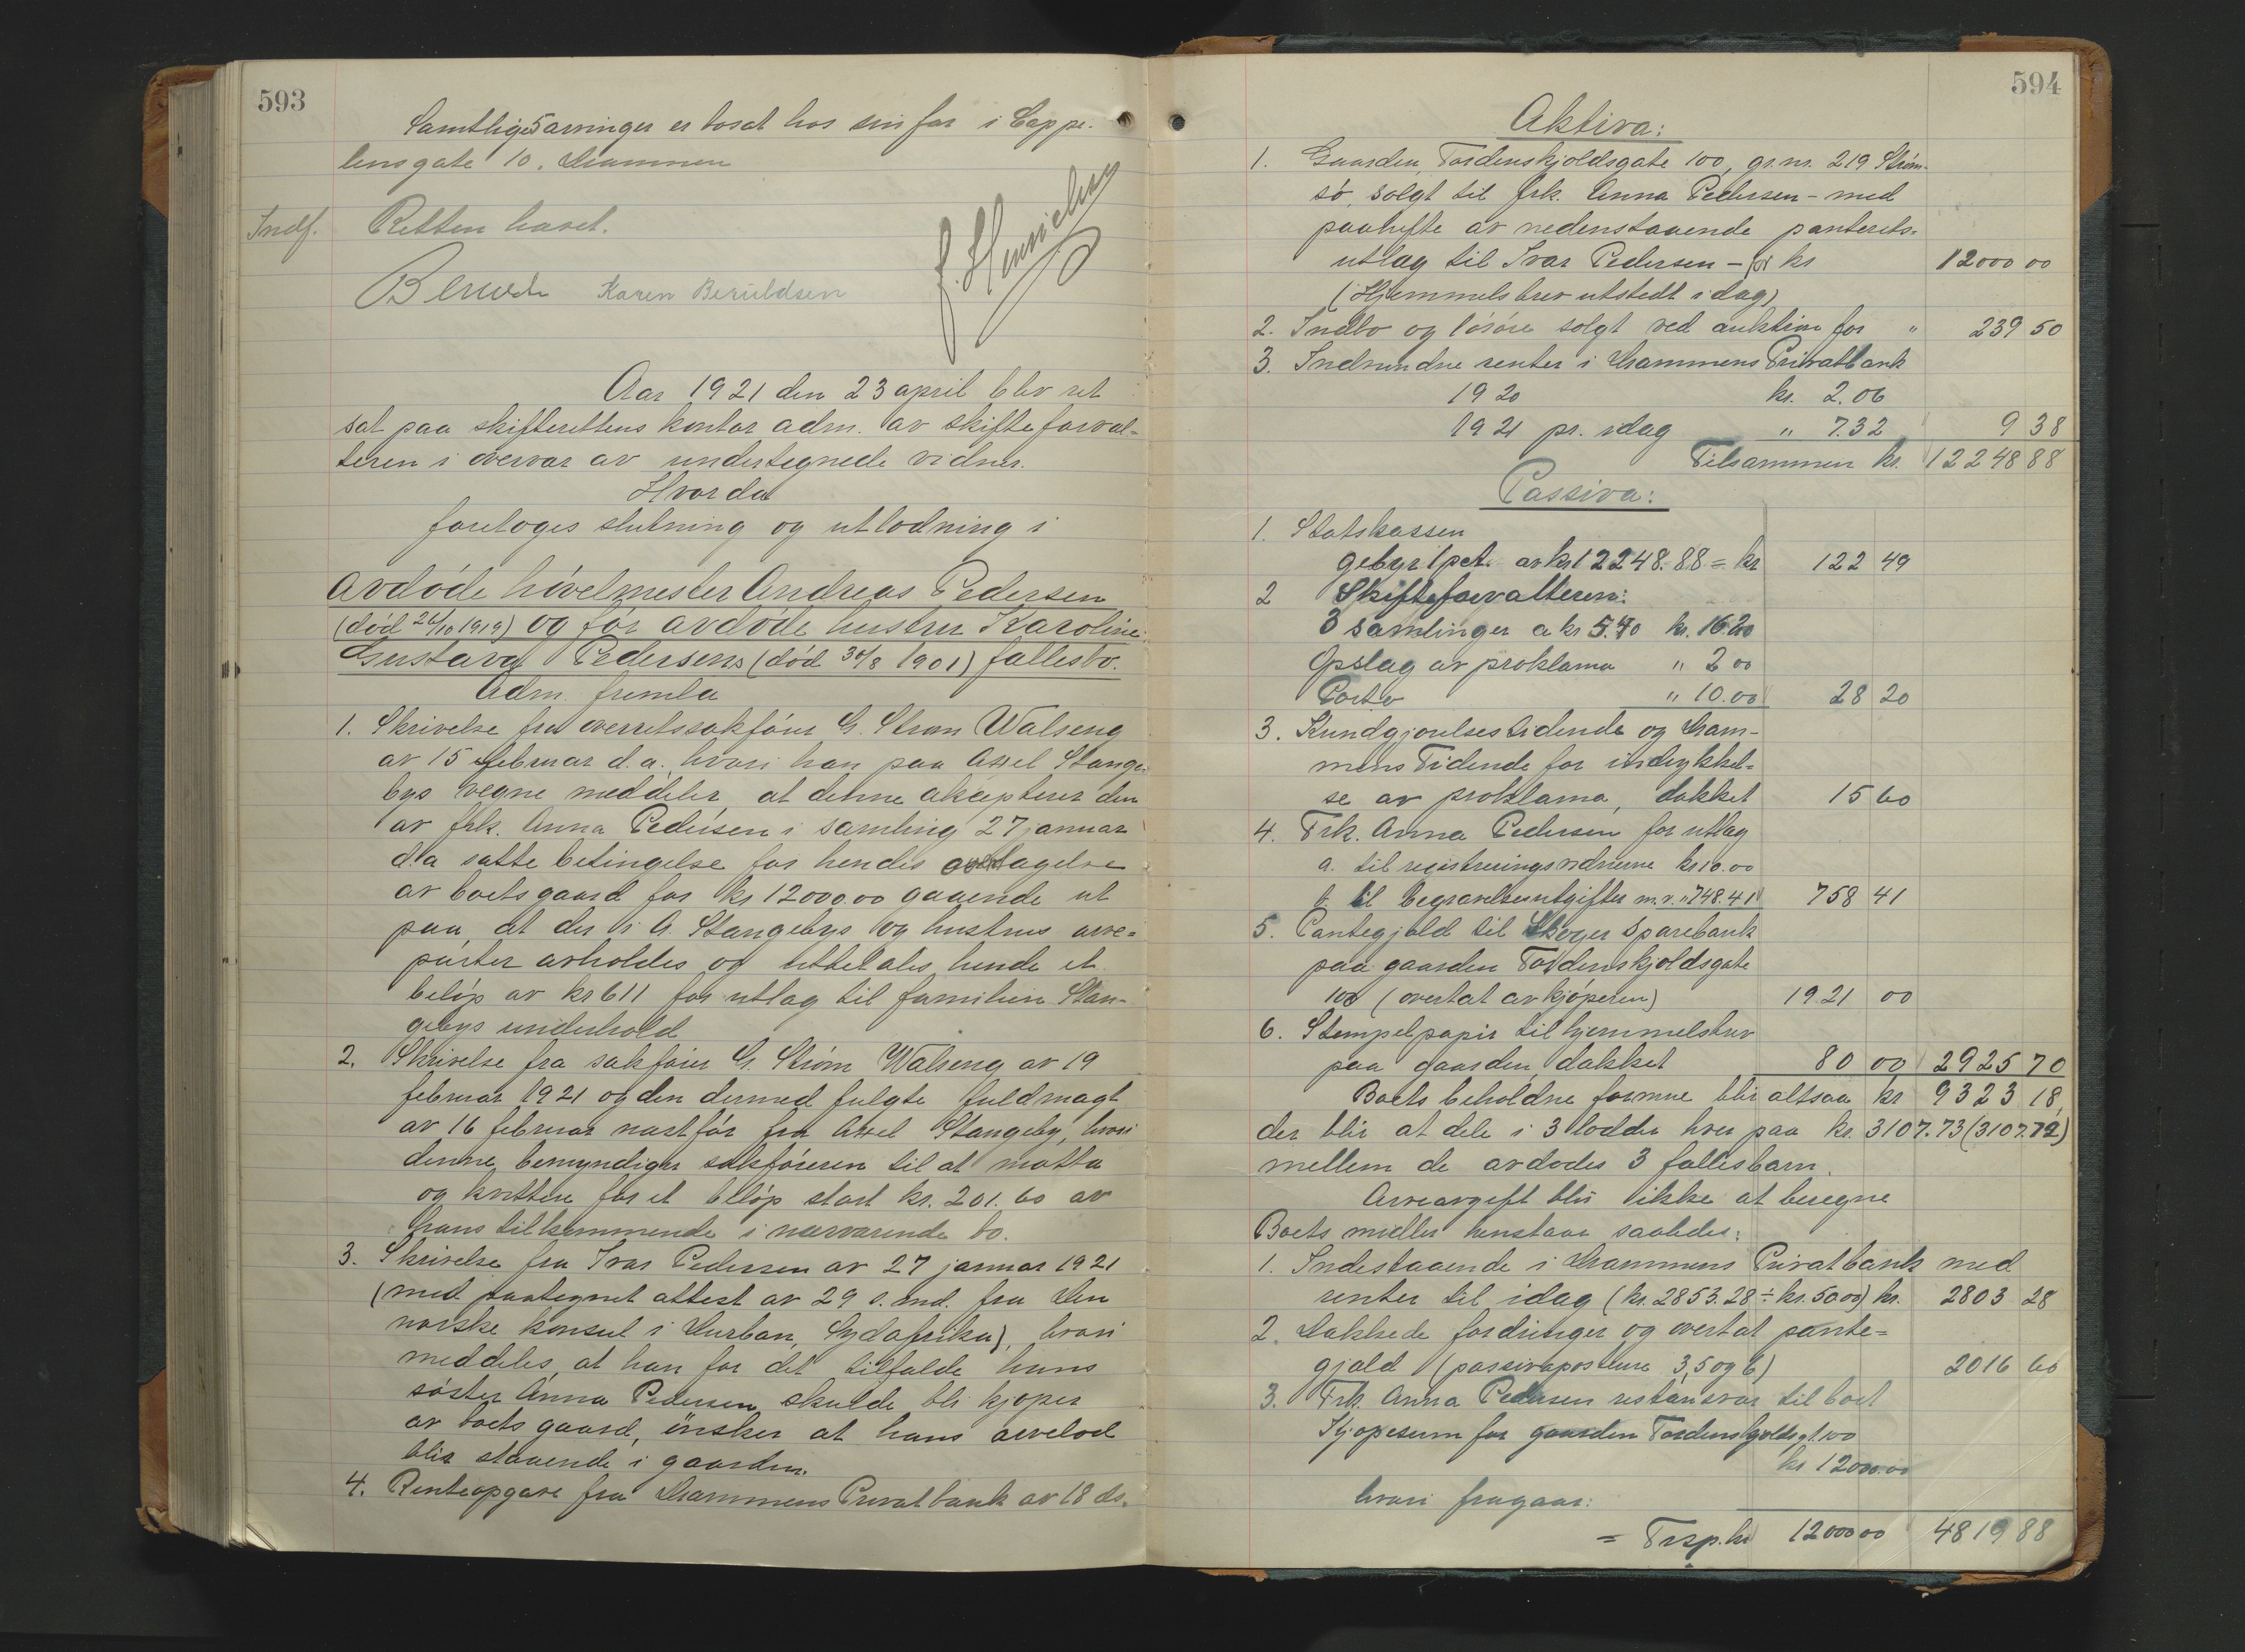 593
Samtlige 5 arvinger er bosat hos sin far i Cappe-
lensgate 10, Drammen
Indf. Retten hævet.
Karen Beruldsen
Aar 1921 den 23 april blev ret
sat paa skifterettens kontor adm. av skifteforval-
teren i overvær av undertegnede vidner.
Hvorda
foretoges slutning og utlodning i
avdøde høvelmester Andreas Pedersen
og før avdøde hustru Karoline
Gustava Pedersens (død 30/8 1901) fællesbo.
Adm. fremla
1. Skrivelse fra overretssakfører G. Strøm Walseng
av 15 februar d.a. hvori han paa Axel Stange-
bys vegne meddeler, at denne aksepterer den
av frk. Anna Pedersen i samling 27 januar
d.a satte betingelse for hendes overtagelse
av boets gaard for kr 12000.00 gaaende ut
paa, at der i A. Stangebys og hustrus arve-
parter avholdes og utbetales hende et
beløp av kr 611 for utlæg til familien Stan-
gebys underhold
2. Skrivelse fra sakfører G. Strøm Walseng av 19
februar 1921 og den dermed fulgte fuldmagt
av 16 februar næstfør fra Axel Stangeby, hvori
denne bemyndiger sakføreren til at motta
og kvittere for et beløp stort kr. 201.60 av
hans tilkommende i nærværende bo.
3. Skrivelse fra Ivar Pedersen av 27 januar 1921
(med paategnet attest av 29 s. md. fra den
norske konsul i Durban, Sydafrika), hvori
meddeles, at han for det tilfælde hans
søster Anna Pedersen skulde bli kjøper
av boets gaard, ønsker at hans arvelod
blir staaende i gaarden.
4. Renteopgave fra Drammens Privatbank av 18 ds.
594
Aktiva:
1. Gaarden Tordenskjoldsgate 100, gr.nr. 219 Strøm-
sø, solgt til frk. Anna Pedersen - med
paahefte av nedenstaaende panterets-
utlæg til Ivar Pedersen - for kr 12000 00
(Hjemmelsbrev utstedt idag)
2. Indbo og løsøre solgt ved auktion for " 239 50
3. Indvundne renter i Drammens Privatbank
1920 kr. 2.06
1921 pr. idag " 7.32 9 38
Tilsammen kr. 12248 88
Passiva:
1. Statskassen
gebyr 1 pct. av kr 12248.88 = kr 122 49
2 Skifteforvalteren:
3 samlinger a kr 5.40 kr. 16.20
Opslag av proklama " 2 00
Porto " 10.00 28 20
3. Kundgjørelsestidende og Dram-
mens Tidende for indrykkel-
se av proklama, dækket 15 60
4. Frk. Anna Pedersen for utlæg
a. til registreringsvidnerne kr 10.00
b til begravelsesutgifter m.v. " 748.41 758 41
5. Pantegjæld til Skoger Sparebank
paa gaarden Tordenskjoldsgate
100 (overtat av kjøperen) 1921 00
6. Stempelpapir til hjemmelsbrev
paa gaarden, dækket 80 00 2925 70
Boets beholdne formue blir altsaa kr 9323 18,
der blir at dele i 3 lodder hver paa kr. 3107.73 (3107.72)
mellem de avdødes 3 fællesbarn.
Arveavgift blir ikke at beregne
Boets midler henstaar saaledes:
1. Indestaaende i Drammens Privatbank med
renter til idag (kr. 2853.28 ÷ kr. 50.00) kr. 2803 28
2. Dækkede fordringer og overtat pante-
gjæld (passivaposterne 3, 5 og 6) 2016 60
3. Frk. Anna Pedersen restansvar til boet
Kjøpesum for gaarden Tordenskjoldsgt. 100
kr 12000.00
hvori fragaar:
= Trsp. kr 12000 00 4819 88